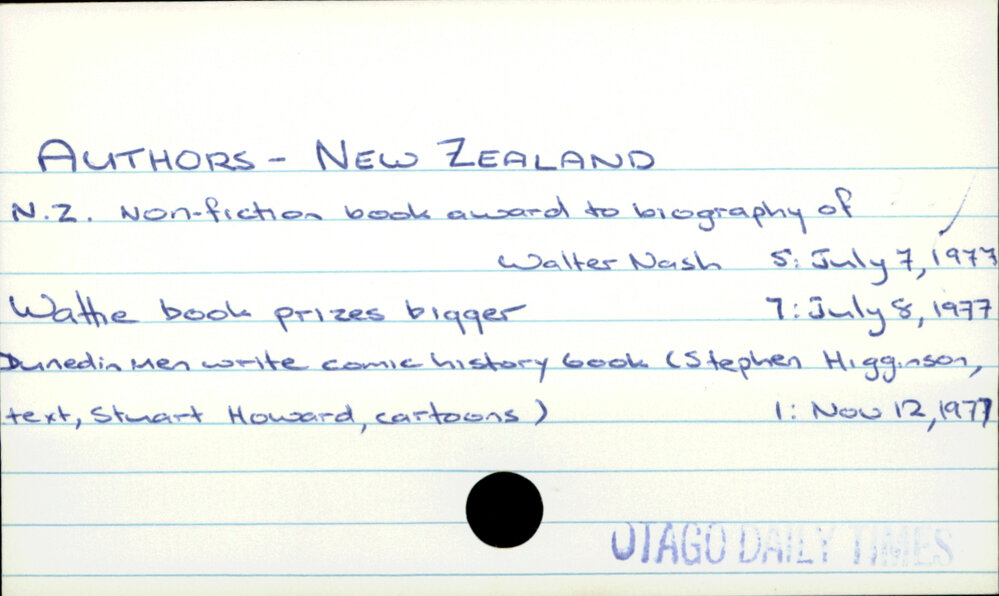 AUTHORS - NEW ZEALAND
N.Z. Non-fiction book award to biography of
Walter Nash 5: July 7, 1977
Wattie book prizes bigger 7: July 8, 1977
Dunedin men write comic history book (Stephen Higginson,
text, Stuart Howard, cartoons) 1: Nov 12, 1977
OTAGO DAILY TIMES